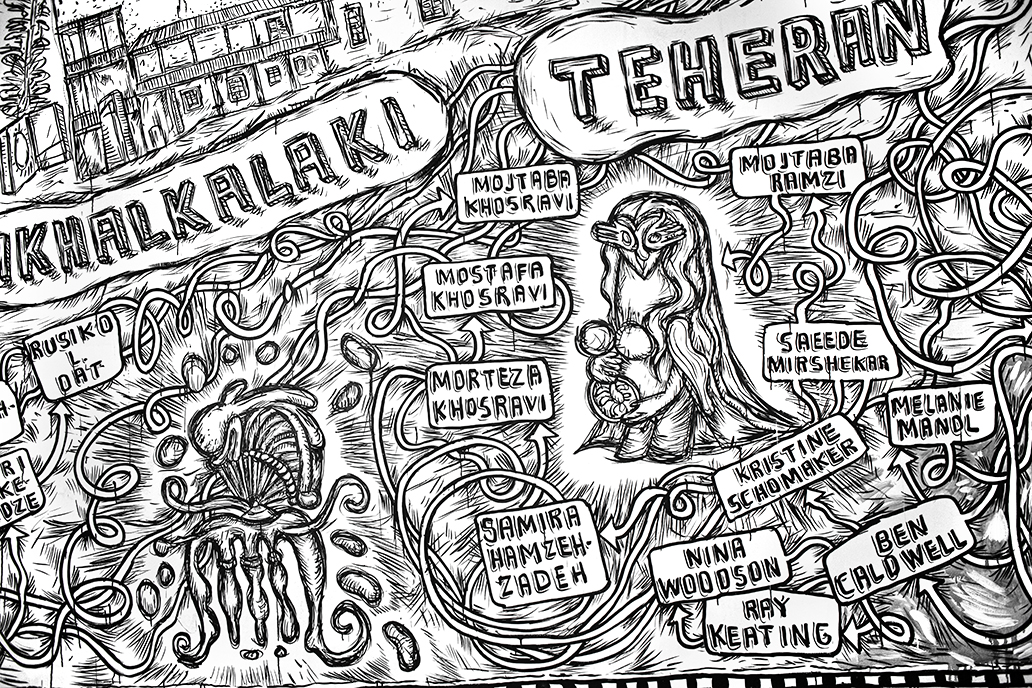 TEHERAN
KHALKALAKI
MOJTABA
KHOSRAVI
MOJTABA
RAMZI
MOSTAFA
KHOSRAVI
RUSIKO
L.
DAT
SAEEDE
MIRSHEKAR
MORTEZA
KHOSRAVI
MELANIE
MANDL
H-
RI
KE-
DZE
KRISTINE
SCHOMAKER
SAMIRA
HAMZEH-
ZADEH
NINA
WOODSON
BEN
CALDWELL
RAY
KEATING